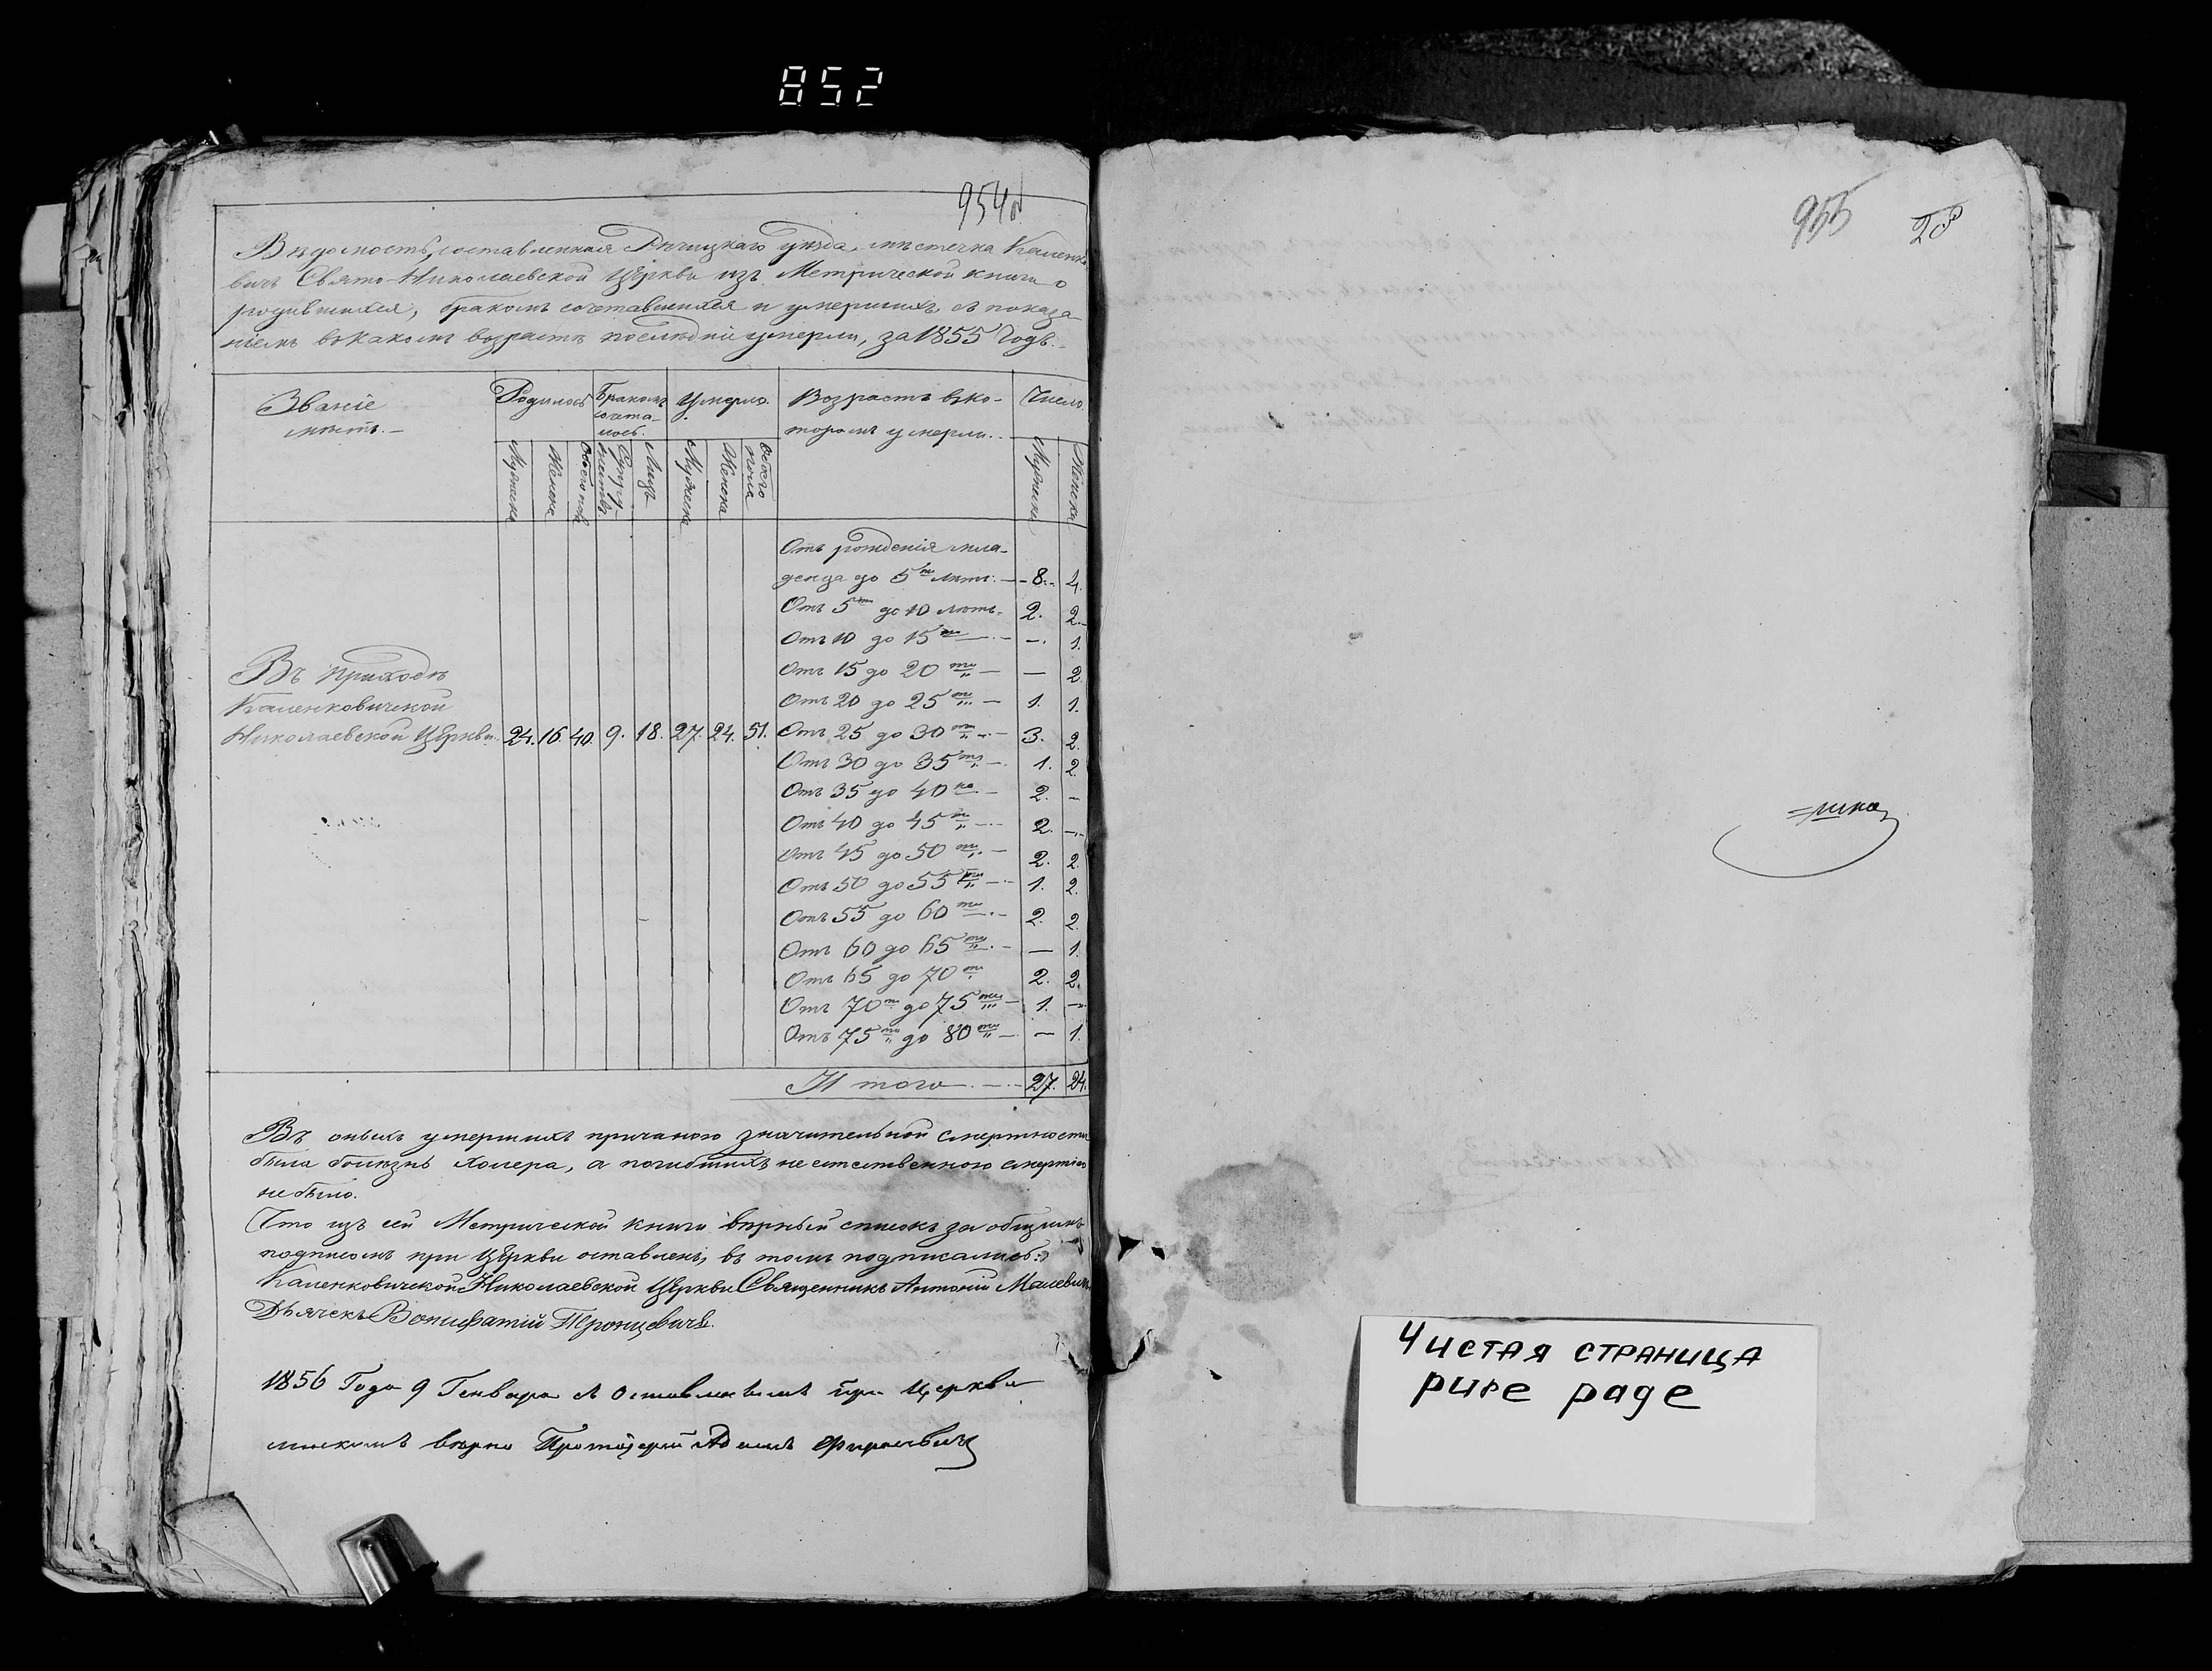 852
954 об
Вѣдомость, составленная Рѣчицкаго уѣзда, мѣстечка Каленко-
вичъ Свято-Николаевской Церкви изъ Метрической книги о
родившихся, бракомъ сочетавшихся и умершихъ, съ показа-
ніемъ въ какомъ возрастѣ послѣдніе умерли, за 1855 Годъ.
Званіе мѣстъ. Родилось Бракомъ сочета-лось. Умерло. Возрастъ въ ко-тором умерли. Число.
Мужеска Женска Обоего пола Супру-жествъ. Лицъ Мужеска Женска Обоего пола Мужеска Женска
Отъ рожденія мла-
денца до 5ти лѣтъ. 8. 4.
Отъ 5ти до 10 лѣтъ. 2. 2.
Отъ 10 до 15ти — — 1.
Отъ 15 до 20ти — — 2.
Отъ 20 до 25ти — 1. 1.
Въ приходѣ
Каленковичской
Николаевской Церкви. 24. 16. 40. 9. 18. 27. 24. 51. Отъ 25 до 30ти — 3. 2.
Отъ 30 до 35ти — 1. 2.
Отъ 35 до 40ка — 2. —
Отъ 40 до 45ти — 2. —
Отъ 45 до 50ти — 2. 2.
Отъ 50 до 55ти — 1. 2.
Отъ 55 до 60ти — 2. 2.
Отъ 60 до 65ти — — 1.
Отъ 65 до 70ти 2. 2.
Отъ 70ти до 75ти — 1. —
Отъ 75ти до 80ти — — 1.
И того — 27. 24.
Въ оныхъ умершихъ причиною значительной смертности
была болѣзнь холера, а погибшихъ не естественною смертію
не было.
Что изъ сей Метрической книги вѣрный списокъ за общимъ
подписомъ при Церкви оставленъ, въ томъ подписались:
Каленковичской Николаевской Церкви Священникъ Антоній Малевичъ
Дьячекъ Вонифатій Тронцевичъ.
1856 Года 9 Генваря съ оставленнымъ при Церкви
спискомъ вѣрно Протоіерей Адамъ
955
28
Чистая страница
pure page